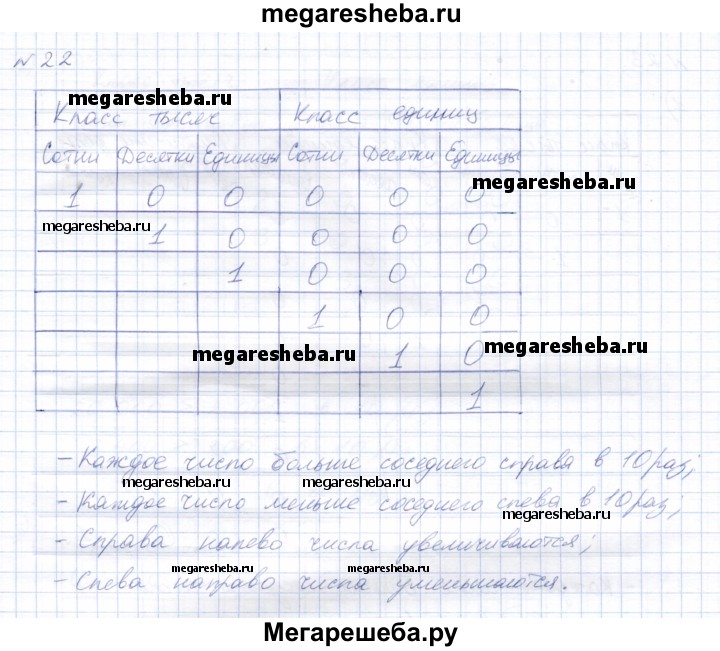 megaresheba.ru
№ 22
megaresheba.ru
Класс тысяч Класс единиц
Сотни Десятки Единицы Сотни Десятки Единицы
megaresheba.ru
1 0 0 0 0 0
megaresheba.ru
1 0 0 0 0
1 0 0 0
1 0 0
megaresheba.ru
megaresheba.ru
1 0
1
– Каждое число больше соседнего справа в 10 раз;
megaresheba.ru
megaresheba.ru
– Каждое число меньше соседнего слева в 10 раз;
megaresheba.ru
– Справа налево числа увеличиваются;
megaresheba.ru
megaresheba.ru
– Слева направо числа уменьшаются.
Мегарешеба.ру